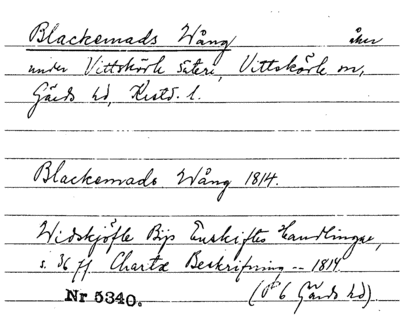 Blackemads Wång åker
under Vittskövle säteri, Vittskövle sn,
Gärds hd, Krstds. l.
Blackemads Wång 1814.
Widskjöfle Bys Enskiftes Handlingar,
s. 36 ff. Charta Beskrifning -- 1814
Nr 5340. (06 Gärds hd).